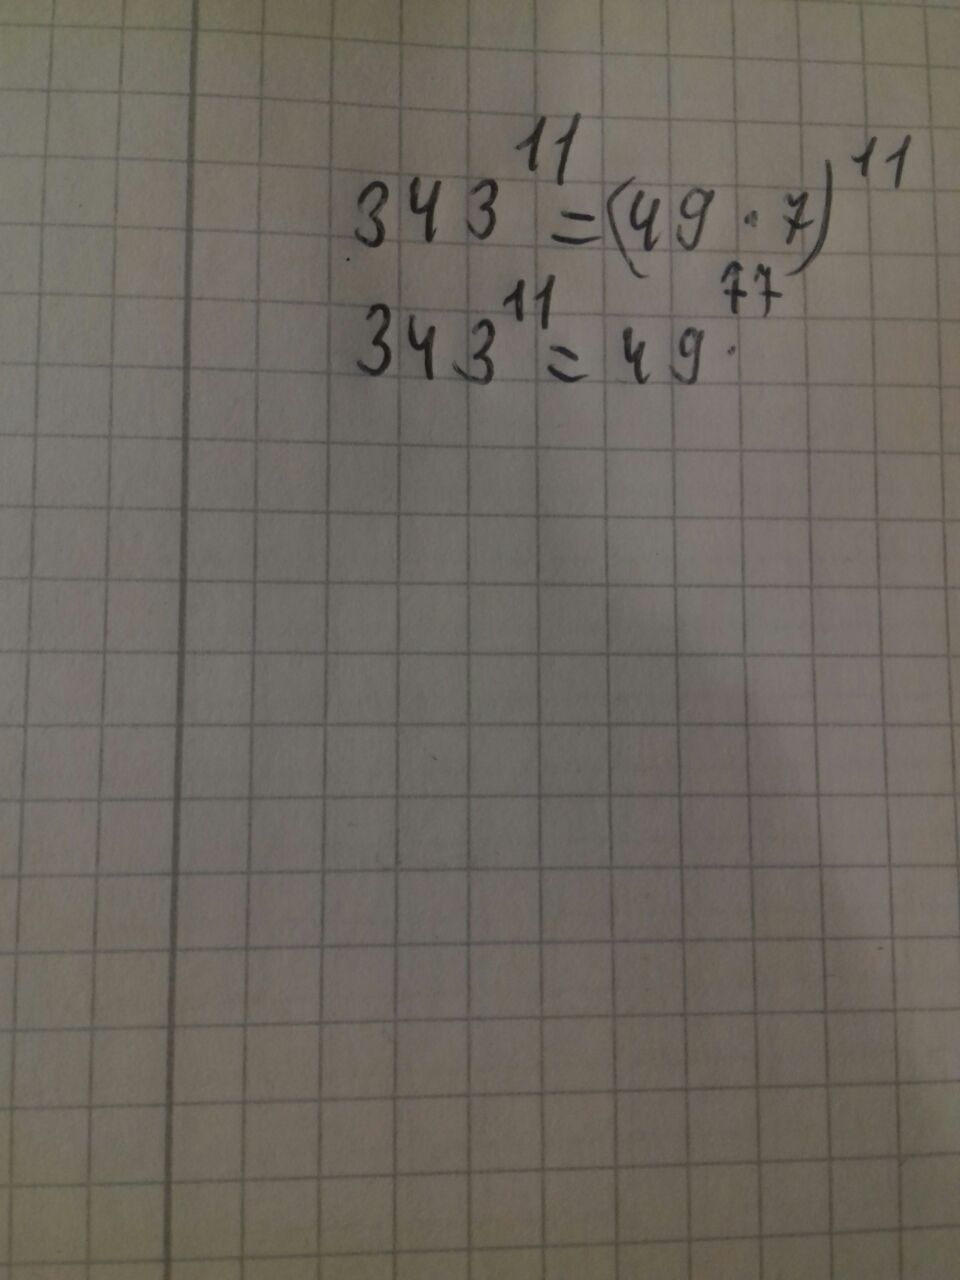 343¹¹ = (49 · 7)¹¹
343¹¹ = 49⁷⁷ ·